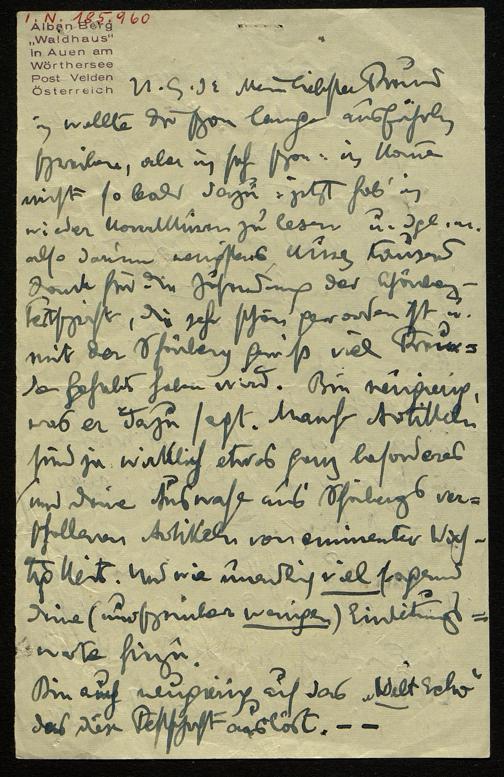 I.N. 185.960
Alban Berg
„Waldhaus"
in Auen am
Wörthersee
Post Velden
Österreich
Mein liebster Freund
ich wollte dir schon lange ausführlich
schreiben, aber ich seh schon: ich komme
nicht so bald dazu: jetzt hab' ich
wieder Korrekturen zu lesen u. dgl. m.
also darum wenigstens kurz tausend
Dank für die Zusendung der Schönberg-
festschrift, die sehr schön geworden ist u.
mit der Schönberg gewiß viel Freu=
de gehabt haben wird. Bin neugierig,
was er dazu sagt. Manche Artikeln
sind ja wirklich etwas ganz besonderes
und deine Auswahl aus Schönbergs ver=
schollenen Artikeln von eminenter Wich-
tigkeit. Und wie unendlich viel sagend
deine (umso weniger) Einleitungs=
worte hinzu.
Bin auch neugierig auf das „Welt Echo"
das diese Festschrift auslöst. — —